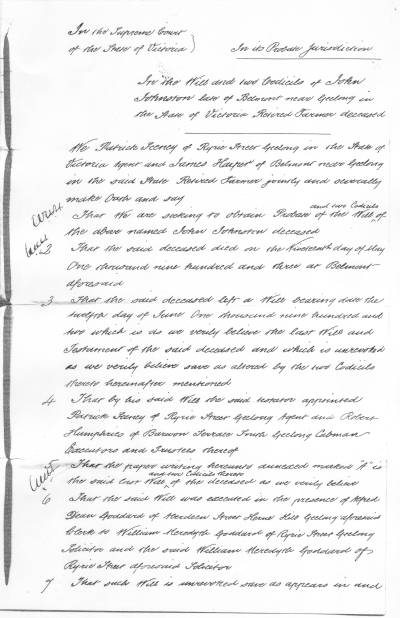 In the Supreme Court
of the State of Victoria
In its Probate Jurisdiction
In the Will and two Codicils of John
Johnston late of Belmont near Geelong in
the State of Victoria Retired Farmer deceased
We Patrick Feeney of Ryrie Street Geelong in the State of
Victoria Agent and James Harper of Belmont near Geelong
in the said State Retired Farmer jointly and severally
make Oath and say
and two Codicils
That We are seeking to obtain Probate of the Will of
the above named John Johnston deceased
2 That the said deceased died on the Nineteenth day of May
One thousand nine hundred and three at Belmont
aforesaid
3 That the said deceased left a Will bearing date the
twelfth day of June One thousand nine hundred and
two which is as we verily believe the last Will and
Testament of the said deceased and which is unrevoked
as we verily believe save as altered by the two Codicils
thereto hereinafter mentioned
4 That by his said Will the said testator appointed
Patrick Feeney of Ryrie Street Geelong Agent and Robert
Humphries of Barwon Terrace South Geelong Cabman
Executors and Trustees thereof
That the paper writing hereunto annexed marked "A" is
and two Codicils thereto
the said last Will of the deceased as we verily believe
6 That the said Will was executed in the presence of Alfred
Dean Goddard of Aberdeen Street Herne Hill Geelong aforesaid
Clerk to William Meredyth Goddard of Ryrie Street Geelong
Solicitor and the said William Meredyth Goddard of
Ryrie Street aforesaid Solicitor
7 That such Will is unrevoked save as appears in and